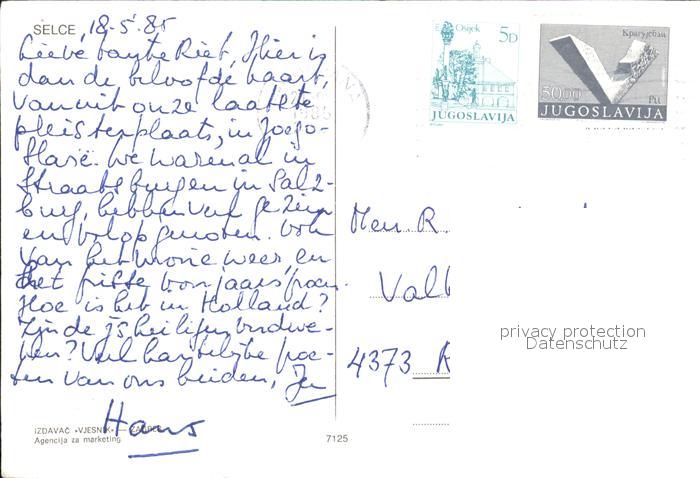 SELCE, 18-5-'85
Lieve tante Riet, Hier is
dan de beloofde kaart,
vanuit onze laatste
pleisterplaats, in Joego-
slavië. We waren al in
Straatsburg en in Salz-
burg, hebben veel gezien
en volop genoten. Ook
van het mooie weer, en
het frisse voorjaarsgroen.
Hoe is het in Holland?
Zijn de ijsheiligen verdwe-
nen? Veel hartelijke groe-
ten van ons beiden,
Hans
IZDAVAČ »VJESNIK« — ZAGREB
Agencija za marketing
7125
Osijek
5D
JUGOSLAVIJA
Крагујевац
50,00
JUGOSLAVIJA
Mevr. R
Valk
4373
privacy protection
Datenschutz